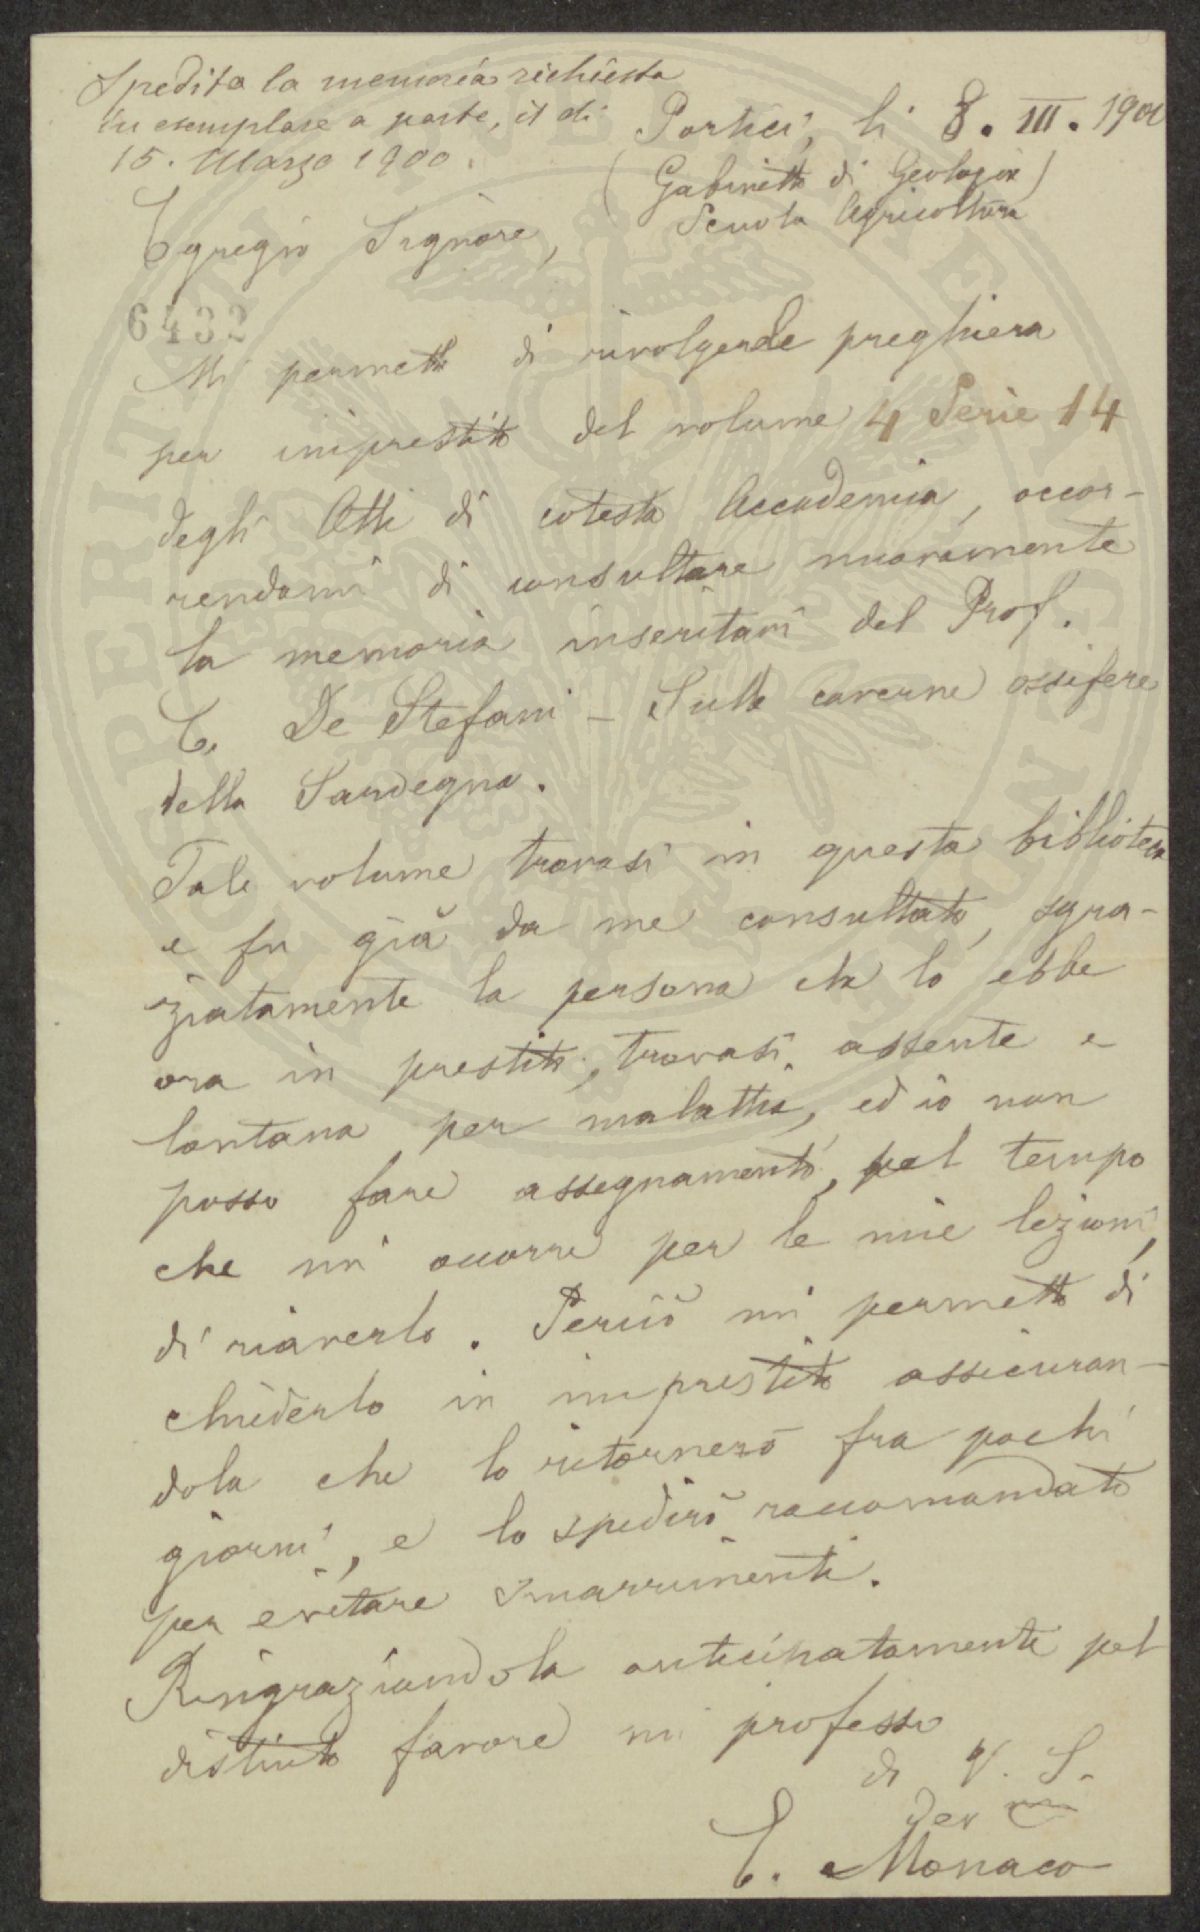 Spedita la memoria richiesta
in esemplare a parte, il dì
15. Marzo 1900.
Portici, li 8. III. 1900
(Gabinetto di Geologia)
Scuola Agricoltura
Egregio Signore,
6432
Mi permetto di rivolgerle preghiera
per imprestito del volume 4 Serie 14
degli Atti di cotesta Accademia, occor-
rendomi di consultare nuovamente
la memoria inseritavi del Prof.
C. De Stefani – Sulle caverne ossifere
della Sardegna.
Tale volume trovasi in questa biblioteca
e fu già da me consultato, sgra-
ziatamente la persona che lo ebbe
ora in prestito, trovasi assente e
lontana per malattia, ed io non
posso fare assegnamento, pel tempo
che mi occorre per le mie lezioni,
di riaverlo. Perciò mi permetto di
chiederlo in imprestito assicuran-
dola che lo ritornerò fra pochi
giorni, e lo spedirò raccomandato
per evitare smarrimenti.
Ringraziandola anticipatamente pel
distinto favore mi professo
di V. S.
Dev mo
E. Monaco